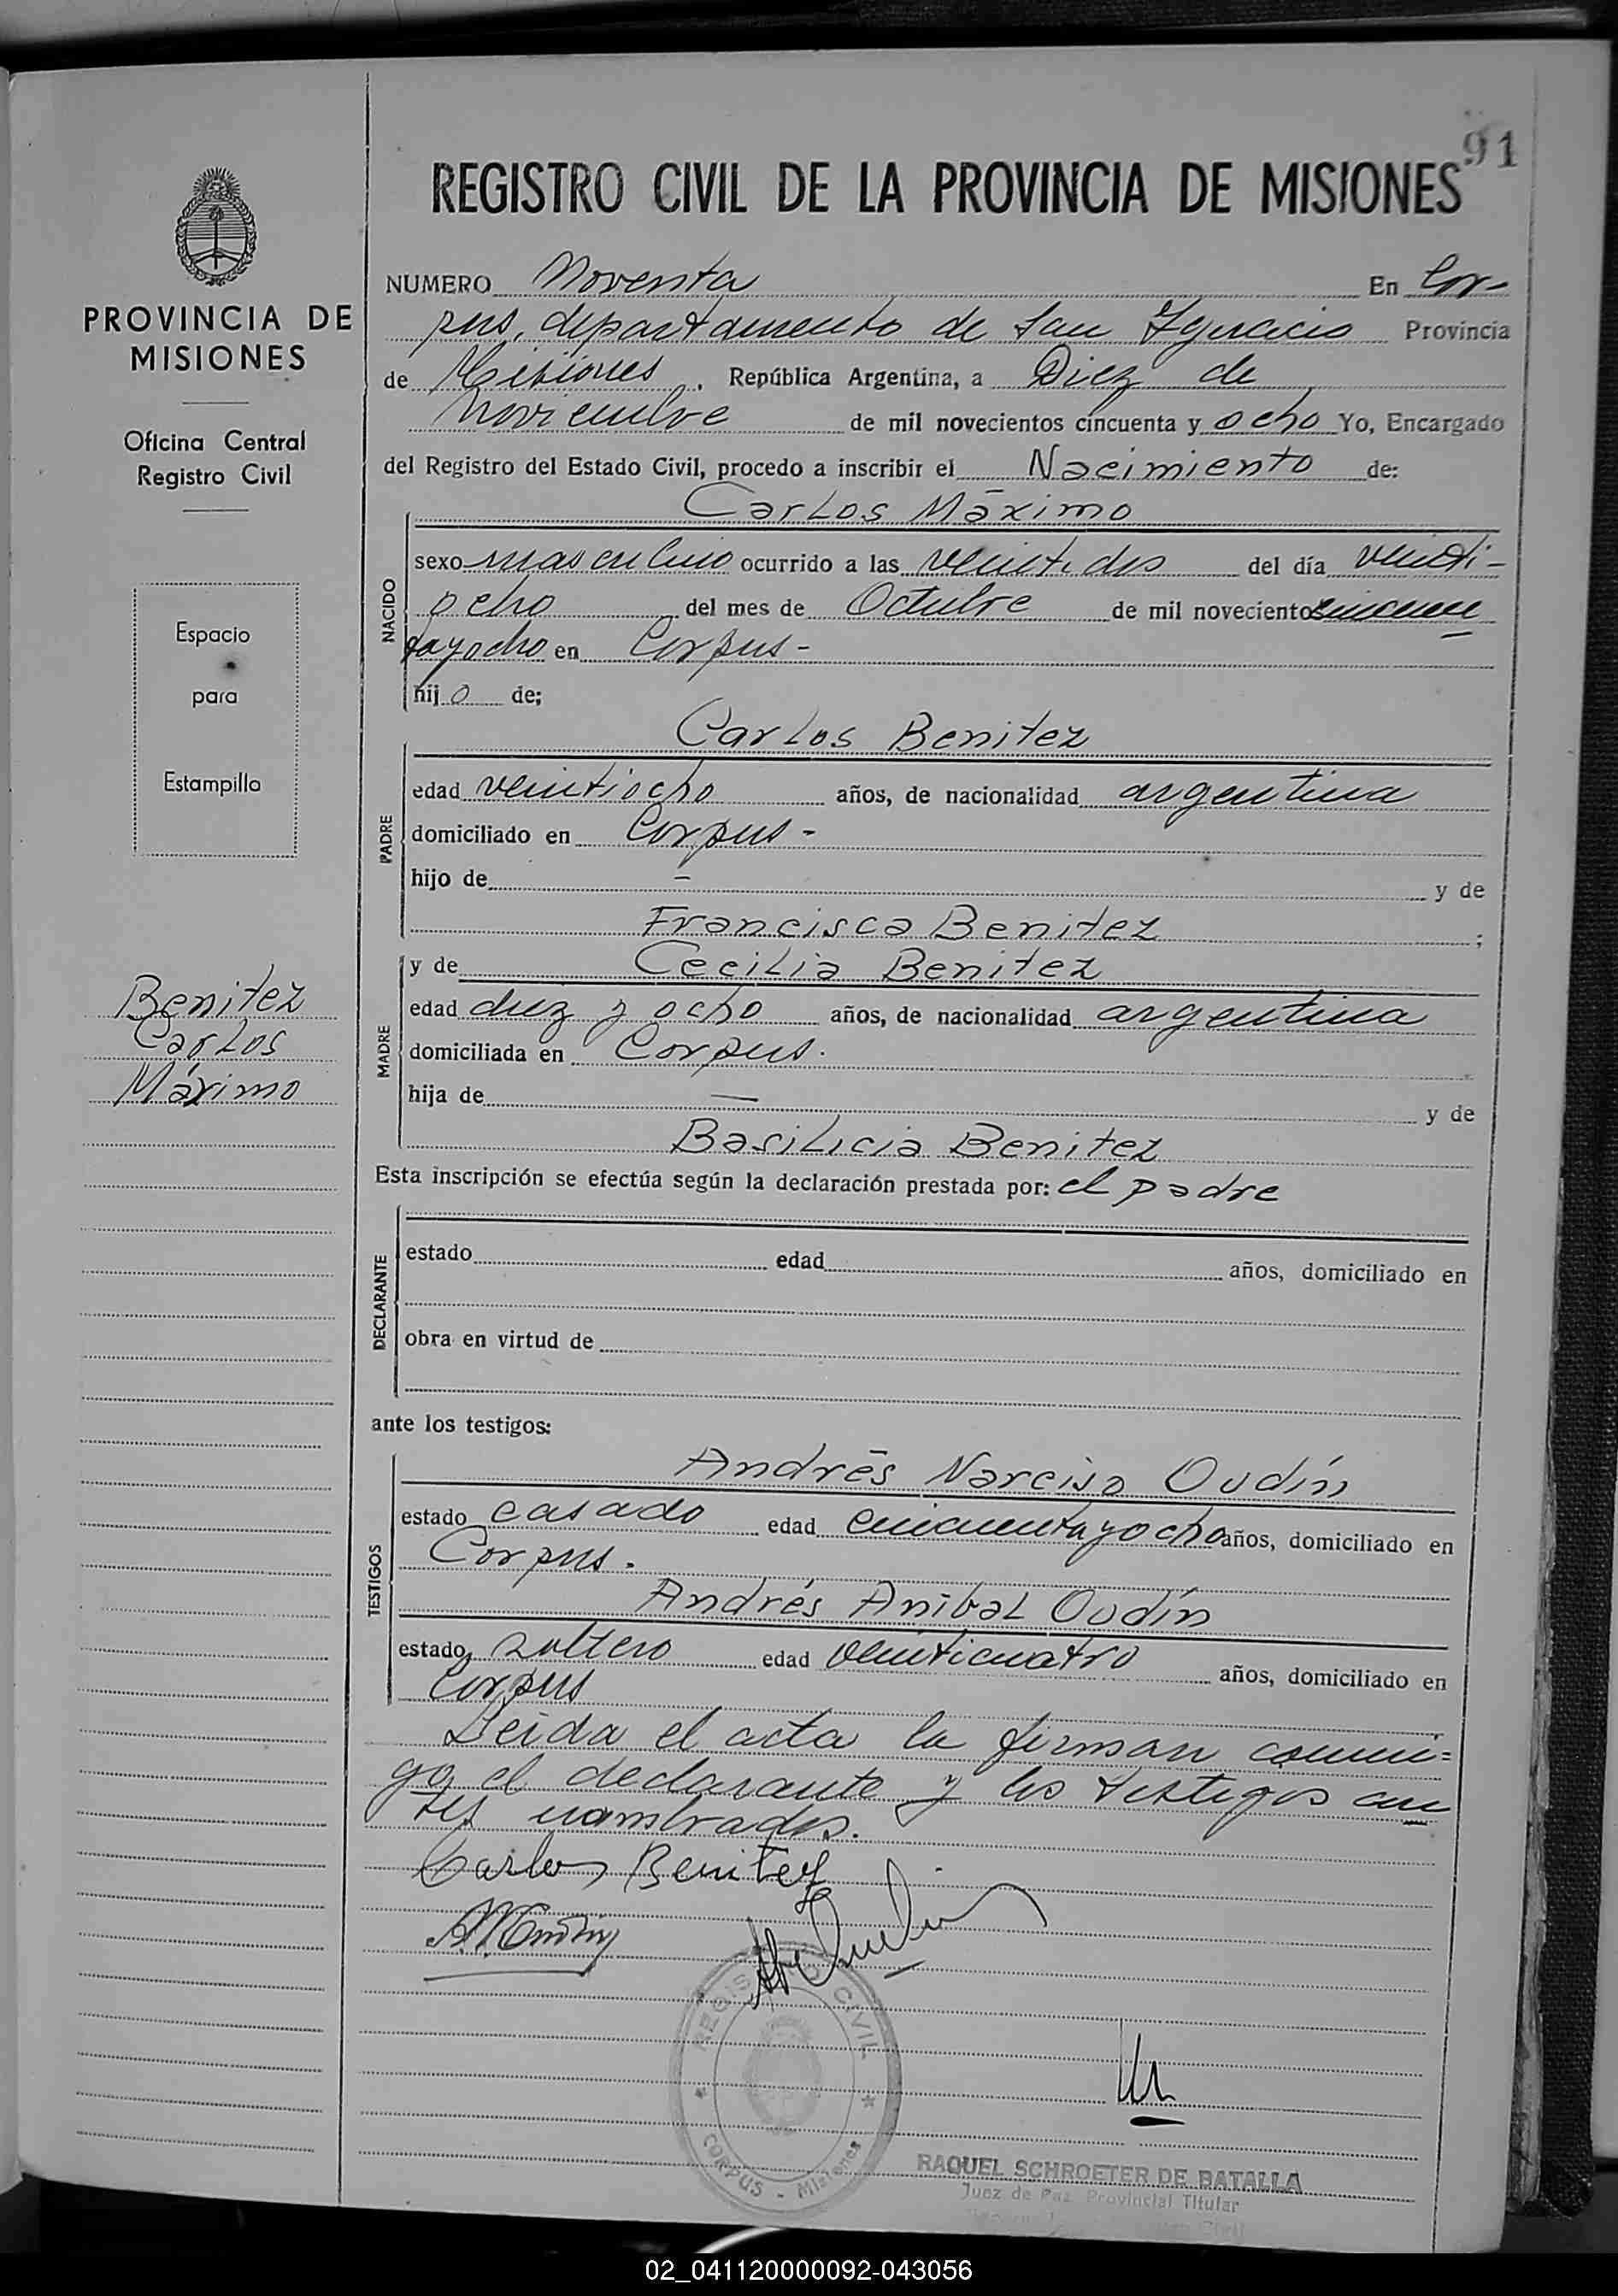 91
REGISTRO CIVIL DE LA PROVINCIA DE MISIONES
PROVINCIA DE
MISIONES
Oficina Central
Registro Civil
Espacio
para
Estampilla
Benitez
Carlos
Máximo
NUMERO Noventa En Cor-
pus, departamento de San Ygnacio Provincia
de Misiones, República Argentina, a Diez de
Noviembre de mil novecientos cincuenta y ocho Yo, Encargado
del Registro del Estado Civil, procedo a inscribir el Nacimiento de:
Carlos Máximo
NACIDO
sexo masculino ocurrido a las veintidos del día veinti-
ocho del mes de Octubre de mil novecientos cincuen
tayocho en Corpus-
hijo de;
Carlos Benitez
PADRE
edad veintiocho años, de nacionalidad argentina
domiciliado en Corpus-
hijo de - y de
Francisca Benitez ;
MADRE
y de Cecilia Benitez
edad diez y ocho años, de nacionalidad argentina
domiciliada en Corpus.
hija de — y de
Basilicia Benitez
Esta inscripción se efectúa según la declaración prestada por: el padre
DECLARANTE
estado edad años, domiciliado en
obra en virtud de
ante los testigos:
TESTIGOS
Andrés Narciso Oudín
estado casado edad cincuentayocho años, domiciliado en
Corpus.
Andrés Anibal Oudín
estado soltero edad veinticuatro años, domiciliado en
Corpus
Leida el acta la firman conmi=
go, el declarante y los testigos an
tes nombrados.
Carlos Benitez
REGISTRO CIVIL
CORPUS - Misiones
RAQUEL SCHROETER DE BATALLA
Juez de Paz Provincial Titular
02_041120000092-043056